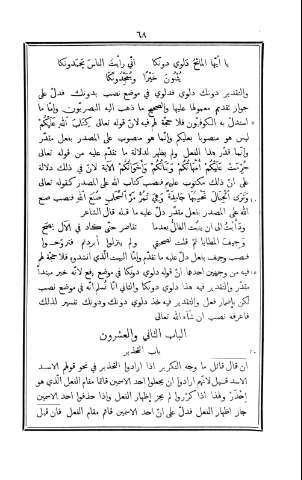 ٦٨
يا أيّها المائح دلوي دونكا    إنّي رأيت الناس يحمدونكا
يثنون خيرًا ويمجّدونكا
والتقدير دونك دلوي فدلوي في موضع نصب بدونك فدلّ على
جواز تقديم معمولها عليها والصحيح ما ذهب اليه البصريّون وامّا ما
استدلّ به الكوفيّون فلا حجّة لهم فيه لانّ قوله تعالى كِتَابَ ٱللّهِ عَلَيْكُمْ
ليس هو منصوبا بعليكم وانّما هو منصوب على المصدر بفعل مقدّر
وانّما قدّر هذا الفعل ولم يظهر لدلالة ما تقدّم عليه من قوله تعالى
حُرِّمَتْ عَلَيْكُمْ أُمَّهَاتُكُمْ وَبَنَاتُكُمْ وَأَخَوَاتُكُمْ الآية لانّ في ذلك دلالة
على انّ ذلك مكتوب عليهم فنصب كتاب الله على المصدر كقوله تعالى
وَتَرَى ٱلْجِبَالَ تَحْسَبُهَا جَامِدَةً وَهِيَ تَمُرُّ مَرَّ ٱلسَّحَابِ صُنْعَ ٱللّهِ فنصب صنع
الله على المصدر بفعل مقدّر دلّ عليه ما قبله قال الشاعر
دأبت الى ان ينبت الظلّ بعدما    تقاصر حتّى كاد في الآل يمصح
وجيف المطايا ثمّ قلت لصحبتي    ولم ينزلوا أبردتم فتروّحوا
فنصب وجيف بفعل دلّ عليه ما تقدّم وامّا البيت الّذي انشدوه فلا حجّة لهم
فيه من وجهين احدهما انّ قوله دلوي دونكا في موضع رفع لانّه خبر مبتدأ
مقدّر والتقدير فيه هذا دلوي دونكا والثاني انّا نسلّم انّه في موضع نصب
لكن بإضمار فعل والتقدير فيه خذ دلوي دونك ودونك تفسير لذلك
فاعرفه تصب ان شاء الله تعالى
الباب الثاني والعشرون
باب التحذير
ان قال قائل ما وجه التكرير اذا ارادوا التحذير في نحو قولهم الاسد
الاسد قيل لانّهم ارادوا ان يجعلوا احد الاسمين قائما مقام الفعل الّذي هو
إحْذَرْ ولهذا اذا كرّروا لم يجز إظهار الفعل وإذا حذفوا احد الاسمين
جاز اظهار الفعل فدلّ على انّ احد الاسمين قائم مقام الفعل فان قيل